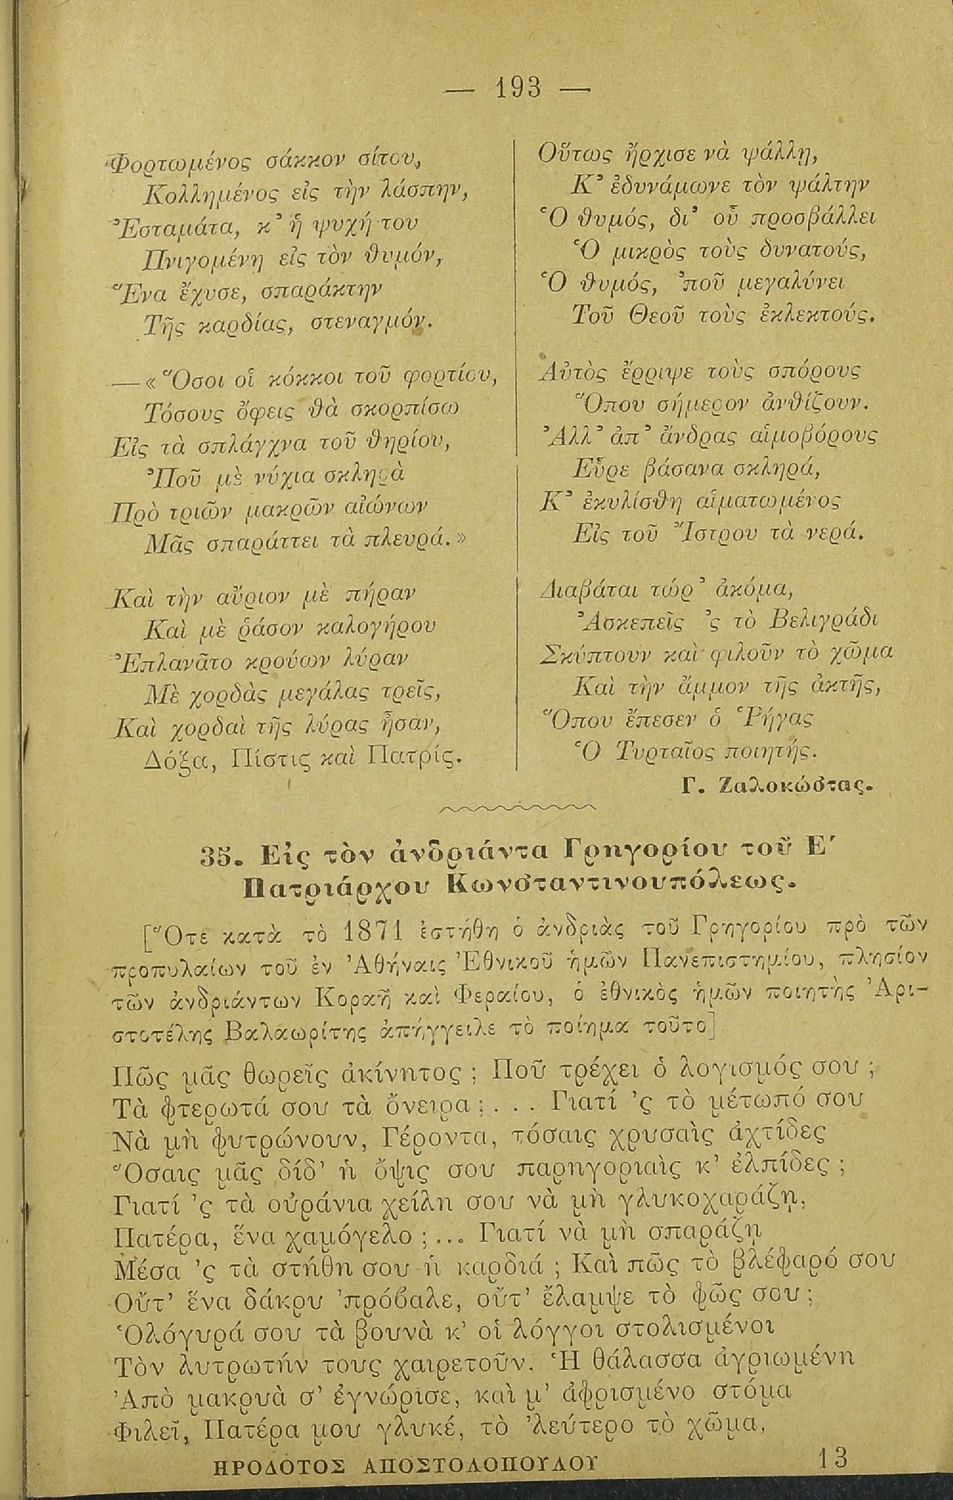 — 193 —
Φορτωμένος σάκκον σίτου,
Κολλημένος εἰς τὴν λάσπην,
Ἐσταμάτα, κ᾽ ἡ ψυχή του
Πνιγομένη εἰς τὸν θυμόν,
Ἕνα ἔχυσε, σπαράκτην
Τῆς καρδίας, στεναγμόν.
— «Ὅσοι οἱ κόκκοι τοῦ φορτίου,
Τόσους ὄφεις θὰ σκορπίσω
Εἰς τὰ σπλάγχνα τοῦ θηρίου,
Ποῦ μὲ νύχια σκληρὰ
Πρὸ τριῶν μακρῶν αἰώνων
Μᾶς σπαράττει τὰ πλευρά.»
Καὶ τὴν αὔριον μὲ πήραν
Καὶ μὲ ῥάσον καλογήρου
Ἐπλανᾶτο κρούων λύραν
Μὲ χορδὰς μεγάλας τρεῖς,
Καὶ χορδαὶ τῆς λύρας ἦσαν,
Δόξα, Πίστις καὶ Πατρίς.
Οὕτως ἤρχισε νὰ ψάλλῃ,
Κ᾽ ἐδυνάμωνε τὸν ψάλτην
Ὁ θυμός, δι᾽ οὗ προσβάλλει
Ὁ μικρὸς τοὺς δυνατούς,
Ὁ θυμός, ᾽ποῦ μεγαλύνει
Τοῦ Θεοῦ τοὺς ἐκλεκτούς.
Αὐτὸς ἔρριψε τοὺς σπόρους
Ὅπου σήμερον ἀνθίζουν.
Ἀλλ᾽ ἀπ᾽ ἄνδρας αἱμοβόρους
Εὗρε βάσανα σκληρά,
Κ᾽ ἐκυλίσθη αἱματωμένος
Εἰς τοῦ Ἴστρου τὰ νερά.
Διαβάται τώρ᾽ ἀκόμα,
Ἀσκεπεῖς ᾽ς τὸ Βελιγράδι
Σκύπτουν καὶ φιλοῦν τὸ χῶμα
Καὶ τὴν ἄμμον τῆς ἀκτῆς,
Ὅπου ἔπεσεν ὁ Ῥήγας
Ὁ Τυρταῖος ποιητής.
Γ. Ζαλοκώστας.
35. Εἰς τὸν ἀνδριάντα Γρηγορίου τοῦ Ε΄
Πατριάρχου Κωνσταντινουπόλεως.
[Ὅτε κατὰ τὸ 1871 ἐστήθη ὁ ἀνδριὰς τοῦ Γρηγορίου πρὸ τῶν
προπυλαίων τοῦ ἐν Ἀθήναις Ἐθνικοῦ ἡμῶν Πανεπιστημίου, πλησίον
τῶν ἀνδριάντων Κοραῆ καὶ Φεραίου, ὁ ἐθνικὸς ἡμῶν ποιητὴς Ἀρι-
στοτέλης Βαλαωρίτης ἀπήγγειλε τὸ ποίημα τοῦτο]
Πῶς μᾶς θωρεῖς ἀκίνητος ; Ποῦ τρέχει ὁ λογισμός σου ;
Τὰ φτερωτά σου τὰ ὄνειρα ;... Γιατί ᾽ς τὸ μέτωπό σου
Νὰ μὴ φυτρώνουν, Γέροντα, τόσαις χρυσαὶς ἀχτίδες
Ὅσαις μᾶς δίδ᾽ ἡ ὄψις σου παρηγοριαὶς κ᾽ ἐλπίδες ;
Γιατί ᾽ς τὰ οὐράνια χείλη σου νὰ μὴ γλυκοχαράζῃ,
Πατέρα, ἕνα χαμόγελο ;... Γιατί νὰ μὴ σπαράζῃ
Μέσα ᾽ς τὰ στήθη σου ἡ καρδιά ; Καὶ πῶς τὸ βλέφαρό σου
Οὔτ᾽ ἕνα δάκρυ ᾽πρόβαλε, οὔτ᾽ ἔλαμψε τὸ φῶς σου ;
Ὁλόγυρά σου τὰ βουνὰ κ᾽ οἱ λόγγοι στολισμένοι
Τὸν λυτρωτήν τους χαιρετοῦν. Ἡ θάλασσα ἀγριωμένη
Ἀπὸ μακρυὰ σ᾽ ἐγνώρισε, καὶ μ᾽ ἀφρισμένο στόμα
Φιλεῖ, Πατέρα μου γλυκέ, τὸ ᾽λεύτερο τὸ χῶμα,
ΗΡΟΔΟΤΟΣ ΑΠΟΣΤΟΛΟΠΟΥΛΟΥ 13